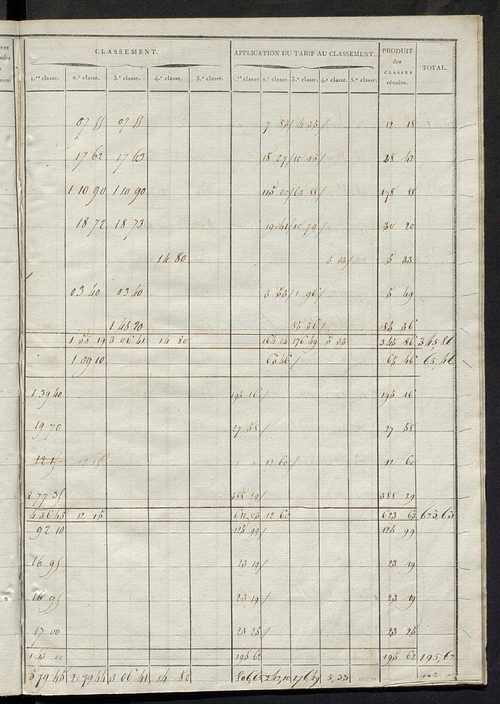 CLASSEMENT. APPLICATION DU TARIF AU CLASSEMENT. PRODUIT des CLASSES réunies. TOTAL.
1.re classe. 2.e classe. 3.e classe. 4.e classe. 5.e classe. 1.re classe. 2.e classe. 3.e classe. 4.e classe. 5.e classe.
07 55 07 55 7 85 4 33 12 18
17 62 17 63 18 27 10 13 28 40
1 10 90 1 10 90 115 00 63 88 178 88
18 72 18 73 19 41 10 79 30 20
14 80 5 33 5 33
03 40 03 40 3 53 1 96 5 49
1 48 20 85 36 85 36
1 58 19 3 06 41 14 80 164 04 176 49 5 33 345 86 345 86
1 09 10 65 46 65 46 65 46
1 39 40 195 16 195 16
19 70 27 58 27 58
12 15 12 60 12 60
2 77 35 388 29 388 29
4 36 45 12 15 611 03 12 60 623 63 623,63
92 10 125 99 125 99
16 95 23 19 23 19
16 95 23 19 23 19
17 00 23 25 23 25
195 62 195 62 195,62
5 79 45 2 79 44 3 06 41 14 80 806 65 176 49 5,33